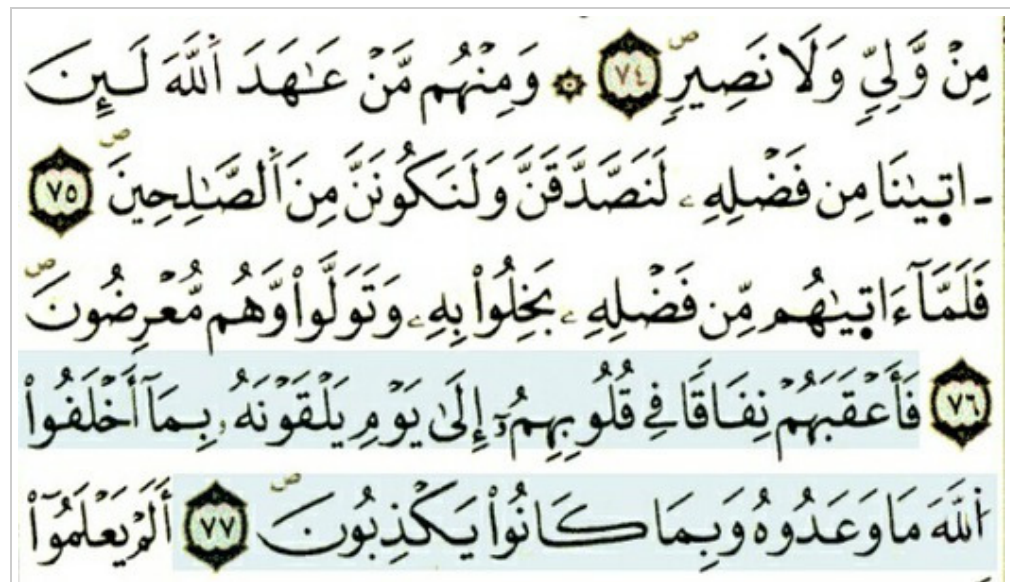 مِنْ وَّلِيّٖ وَلَا نَصِيرٖۖ ٧٤ ۞ وَمِنْهُم مَّنْ عَـٰهَدَ اَ۬للَّهَ لَـئِنَ
ـ اتٜيٰنَا مِن فَضْلِهِۦ لَنَصَّدَّقَنَّ وَلَنَكُونَنَّ مِنَ اَ۬لصَّـٰلِحِينَۖ ٧٥
فَلَمَّآ ءَاتٜيٰهُم مِّن فَضْلِهِۦ بَخِلُواْ بِهِۦ وَتَوَلَّواْ وَّهُم مُّعْرِضُونَۖ
٧٦ فَأَعْقَبَهُمْ نِفَاقاٗ فِے قُلُوبِهِمُۥٓ إِلَىٰ يَوْمِ يَلْقَوْنَهُۥ بِمَآ أَخْلَفُواْ
اُ۬للَّهَ مَا وَعَدُوهُ وَبِمَا كَانُواْ يَكْذِبُونَۖ ٧٧ أَلَمْ يَعْلَمُوٓاْ